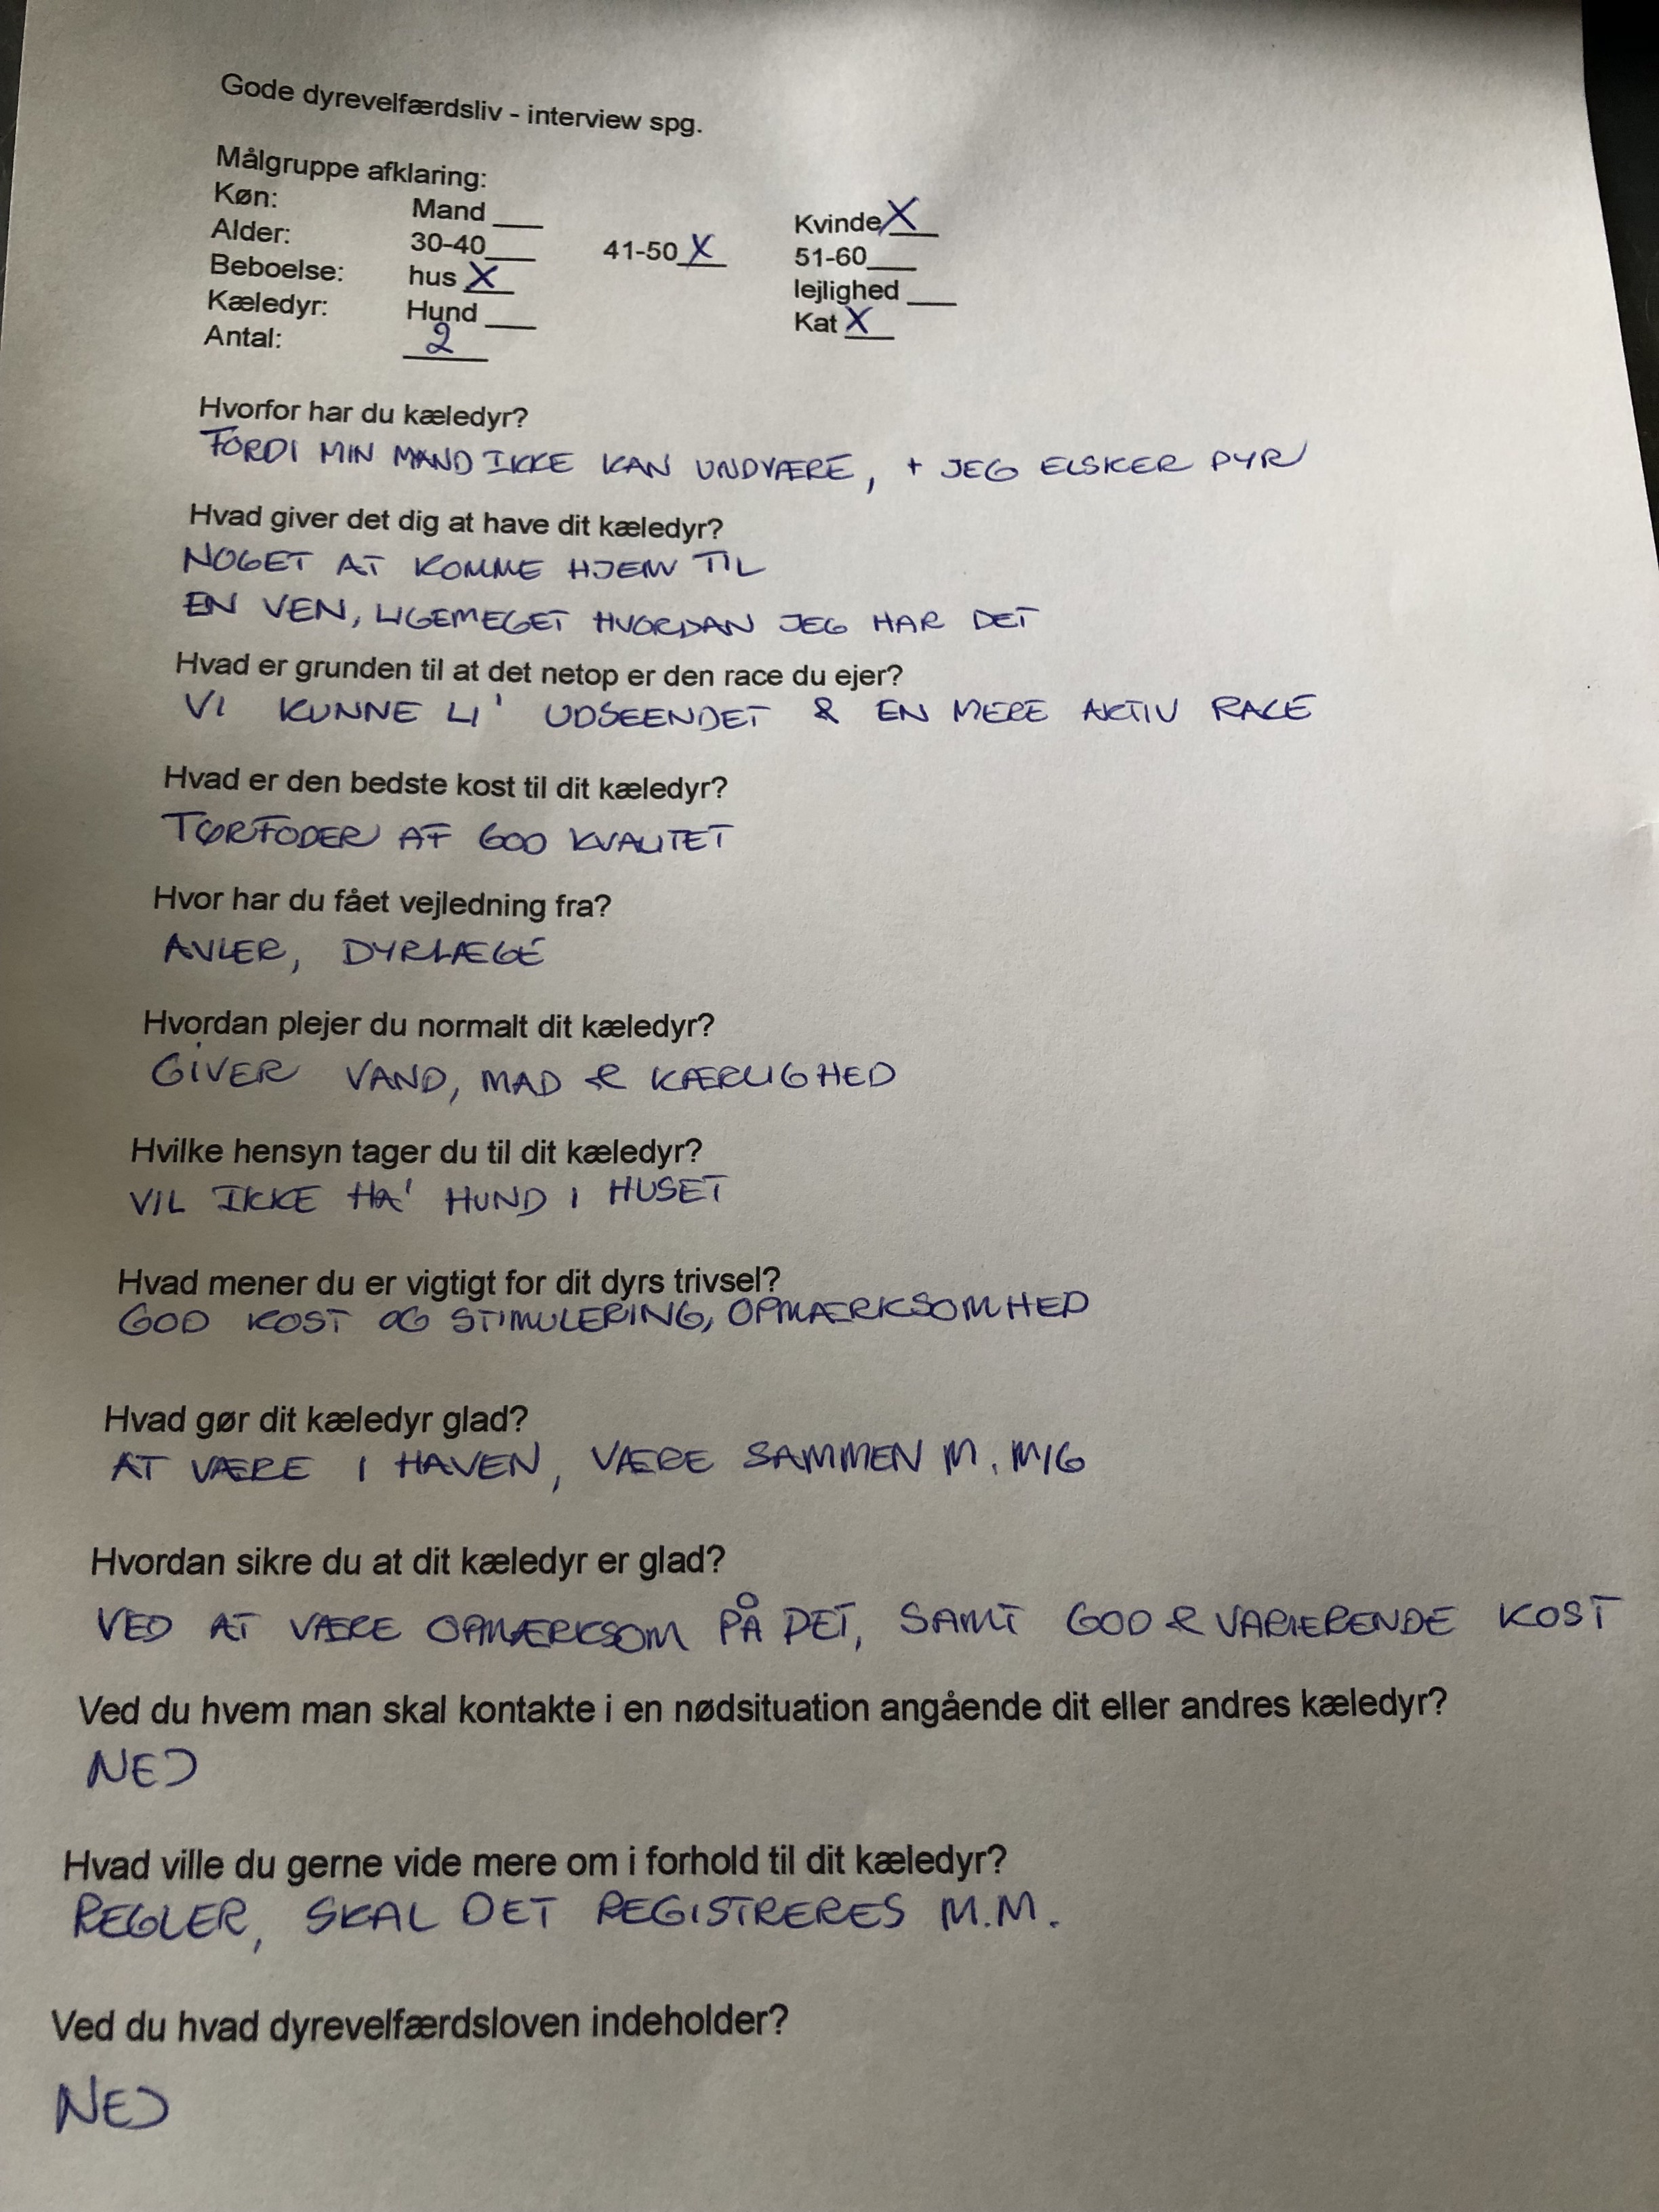 Gode dyrevelfærdsliv - interview spg.
Målgruppe afklaring:
Køn: Mand ___ Kvinde X
Alder: 30-40___ 41-50 X 51-60___
Beboelse: hus X lejlighed ___
Kæledyr: Hund ___ Kat X
Antal: 2
Hvorfor har du kæledyr?
FORDI MIN MAND IKKE KAN UNDVÆRE, + JEG ELSKER DYR
Hvad giver det dig at have dit kæledyr?
NOGET AT KOMME HJEM TIL
EN VEN, LIGEMEGET HVORDAN JEG HAR DET
Hvad er grunden til at det netop er den race du ejer?
VI KUNNE LI' UDSEENDET & EN MERE AKTIV RACE
Hvad er den bedste kost til dit kæledyr?
TØRFODER AF GOD KVALITET
Hvor har du fået vejledning fra?
AVLER, DYRLÆGE
Hvordan plejer du normalt dit kæledyr?
GIVER VAND, MAD & KÆRLIGHED
Hvilke hensyn tager du til dit kæledyr?
VIL IKKE HA' HUND I HUSET
Hvad mener du er vigtigt for dit dyrs trivsel?
GOD KOST OG STIMULERING, OPMÆRKSOMHED
Hvad gør dit kæledyr glad?
AT VÆRE I HAVEN, VÆRE SAMMEN M. MIG
Hvordan sikre du at dit kæledyr er glad?
VED AT VÆRE OPMÆRKSOM PÅ DET, SAMT GOD & VARIERENDE KOST
Ved du hvem man skal kontakte i en nødsituation angående dit eller andres kæledyr?
NEJ
Hvad ville du gerne vide mere om i forhold til dit kæledyr?
REGLER, SKAL DET REGISTRERES M.M.
Ved du hvad dyrevelfærdsloven indeholder?
NEJ